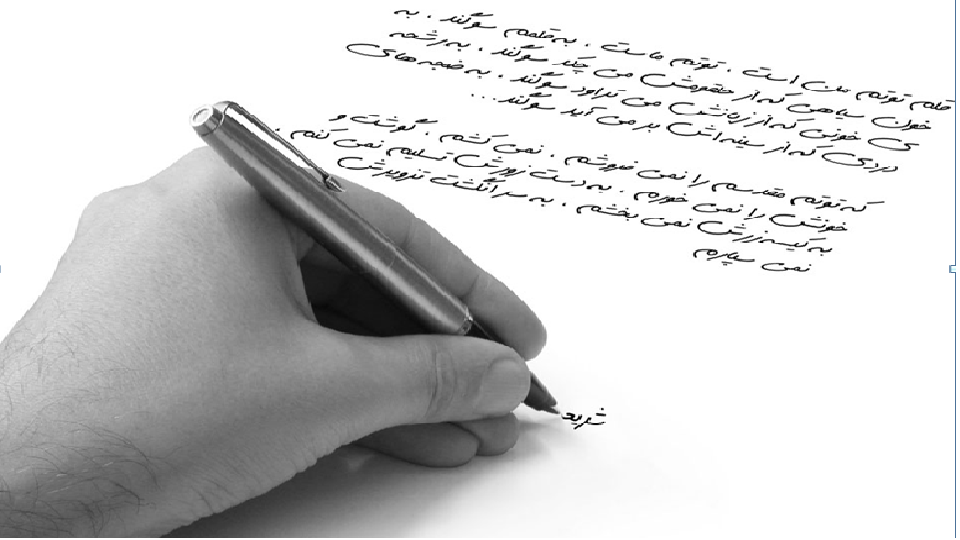 قلم توتم من است . توتم ماست . به قلمم سوگند . به
خون سیاهی که از حلقومش می چکد سوگند . به رشحه
ی خونی که از زبانش می تراود سوگند . به ضجه های
دردی که از سینه اش بر می آید سوگند...
که توتم مقدسم را نمی فروشم . نمی کشم . گوشت و
خونش را نمی خورم . به دست زورش تسلیم نمی کنم .
به کیسه زرش نمی بخشم . به سر انگشت تزویرش
نمی سپارم